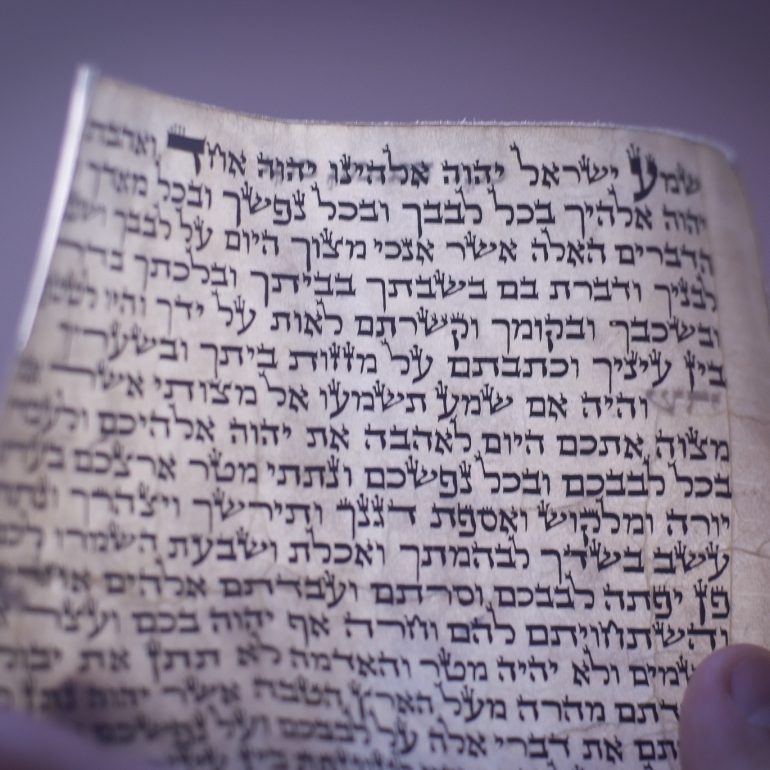 שמע ישראל יהוה אלהינו יהוה אחד ואהבת
יהוה אלהיך בכל לבבך ובכל נפשך ובכל מאדך
הדברים האלה אשר אנכי מצוך היום על לבבך
לבניך ודברת בם בשבתך בביתך ובלכתך בדרך
ובשכבך ובקומך וקשרתם לאות על ידך והיו
בין עיניך וכתבתם על מזזות ביתך ובשעריך
והיה אם שמע תשמעו אל מצותי אשר
מצוה אתכם היום לאהבה את יהוה אלהיכם
בכל לבבכם ובכל נפשכם ונתתי מטר ארצכם
יורה ומלקוש ואספת דגנך ותירשך ויצהרך
עשב בשדך לבהמתך ואכלת ושבעת השמרו
פן יפתה לבבכם וסרתם ועבדתם אלהים
והשתחויתם להם וחרה אף יהוה בכם ועצר
ולא יהיה מטר והאדמה לא תתן את
מהרה מעל הארץ הטבה אשר יהוה
את דברי אלה על לבבכם ועל